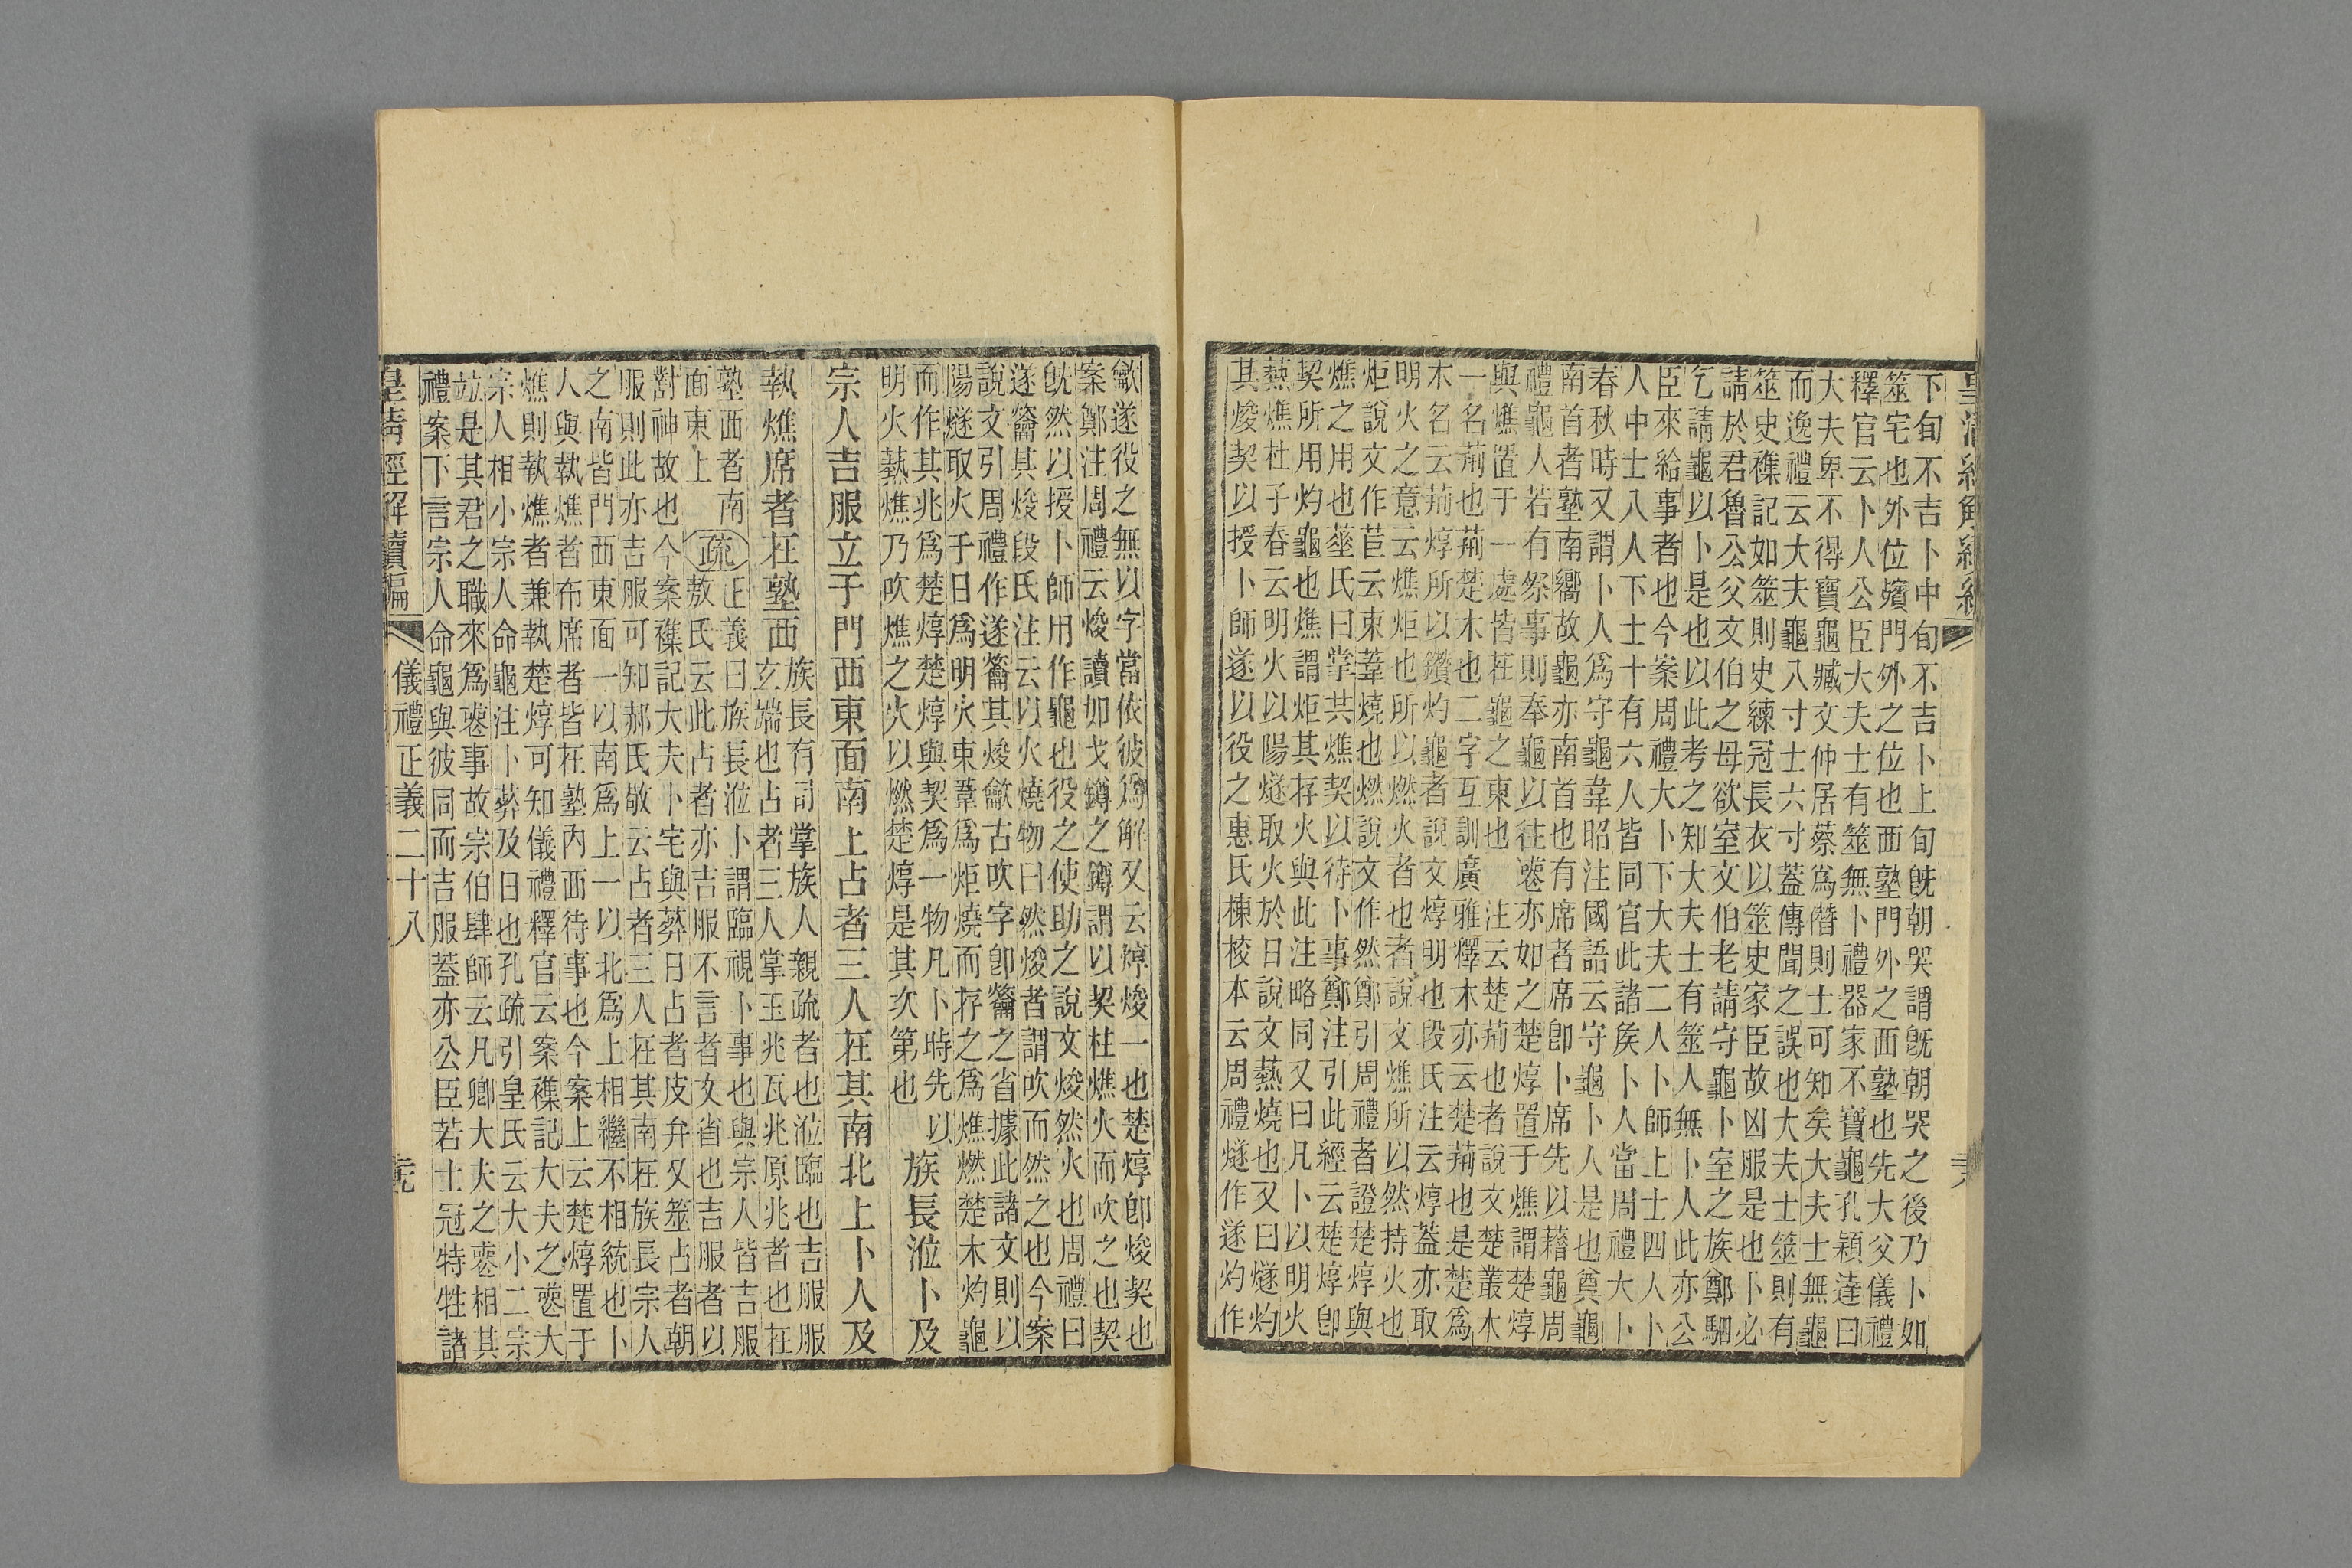 皇清經解續編
下旬不吉卜中旬不吉卜上旬旣朝哭謂旣朝哭之後乃卜如
筮宅也外位殯門外之位也西塾門外之西塾也先大父儀禮
釋官云卜人公臣大夫士有筮無卜禮器家不寶龜孔穎達曰
大夫卑不得寶龜臧文仲居蔡爲僭則士可知矣大夫士無龜
而逸禮云大夫龜八寸士六寸蓋傳聞之誤也大夫士筮則有
筮史襍記如筮則史練冠長衣以筮史家臣故凶服是也卜必
請於君魯公父文伯之母欲室文伯老請守龜卜室之族鄭駟
乞請龜以卜是也以此考之知大夫士有筮人無卜人此亦公
臣來給事者也今案周禮大卜下大夫二人卜師上士四人卜
人中士八人下士十有六人皆同官此諸矦卜人當周禮大卜
春秋時又謂卜人爲守龜韋昭注國語云守龜卜人是也奠龜
南首者塾南嚮故龜亦南首也有席者席卽卜席先以藉龜周
禮龜人若有祭事則奉龜以往喪亦如之楚焞置于燋謂楚焞
與燋置于一處皆在龜之東也 注云楚荊也者說文楚叢木
一名荊也荊楚木也二字互訓廣雅釋木亦云楚荊也是楚爲
木名云荊焞所以鑽灼龜者說文焞明也段氏注云焞蓋亦取
明火之意云燋炬也所以燃火者也者說文燋所以然持火也
炬說文作苣云束葦燒也燃說文作然鄭引周禮者證楚焞與
燋之用也菙氏曰掌共燋契以待卜事鄭注引此經云楚焞卽
契所用灼龜也燋謂炬其存火與此注略同又曰凡卜以明火
爇燋杜子春云明火以陽燧取火於日說文爇燒也又曰燧灼
其焌契以授卜師遂以役之惠氏棟校本云周禮燧作遂灼作
龡遂役之無以字當依彼爲解又云焞焌一也楚焞卽焌契也
案鄭注周禮云焌讀如戈鐏之鐏謂以契柱燋火而吹之也契
旣然以授卜師用作龜也役之使助之說文焌然火也周禮曰
遂籥其焌段氏注云以火燒物曰然焌者謂吹而然之也今案
說文引周禮作遂籥其焌龡古吹字卽籥之省據此諸文則以
陽燧取火于日爲明火束葦爲炬燒而存之爲燋燃楚木灼龜
而作其兆爲楚焞楚焞與契爲一物凡卜時先以
明火爇燋乃吹燋之火以燃楚焞是其次第也
族長涖卜及
宗人吉服立于門西東面南上占者三人在其南北上卜人及
執燋席者在塾西
族長有司掌族人親疏者也涖臨也吉服服
玄端也占者三人掌玉兆瓦兆原兆者也在
塾西者南
面東上
疏
正義曰族長涖卜謂臨視卜事也與宗人皆吉服
敖氏云此占者亦吉服不言者文省也吉服者以
對神故也今案襍記大夫卜宅與葬日占者皮弁又筮占者朝
服則此亦吉服可知郝氏敬云占者三人在其南在族長宗人
之南皆門西東面一以南爲上一以北爲上相繼不相統也卜
人與執燋者布席者皆在塾內西待事也今案上云楚焞置于
燋則執燋者兼執楚焞可知儀禮釋官云案襍記大夫之喪大
宗人相小宗人命龜注卜葬及日也孔疏引皇氏云大小二宗
竝是其君之職來爲喪事故宗伯肆師云凡卿大夫之喪相其
禮案下言宗人命龜與彼同而吉服蓋亦公臣若士冠特牲諸
皇清經解續編
儀禮正義二十八